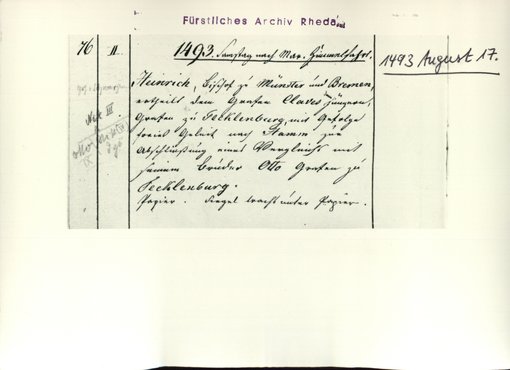 Fürstliches Archiv Rheda
76 II. 1493. Samstag nach Mar. Himmelfahrt.
1493 August 17.
Heinrich, Bischof zu Münster und Bremen,
ertheilt dem Grafen Claves jüngern,
Grafen zu Tecklenburg, mit Gefolge
freies Geleit nach Hamm zu
Abschließung eines Vergleichs mit
seinem Bruder Otto Grafen zu
Tecklenburg.
Papier. Siegel unter Papier.
Nr III